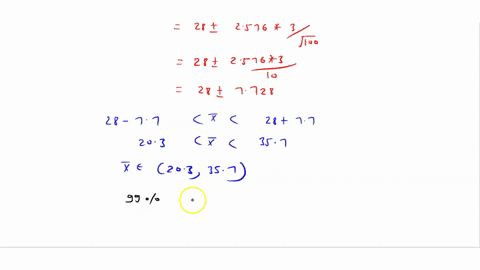 = 28 ± 2.576 * 3/√100
= 28 ± 2.576*3/10
= 28 ± 7.728
28 - 7.7 < x̄ < 28 + 7.7
20.3 < x̄ < 35.7
x̄ ∈ (20.3, 35.7)
99 %